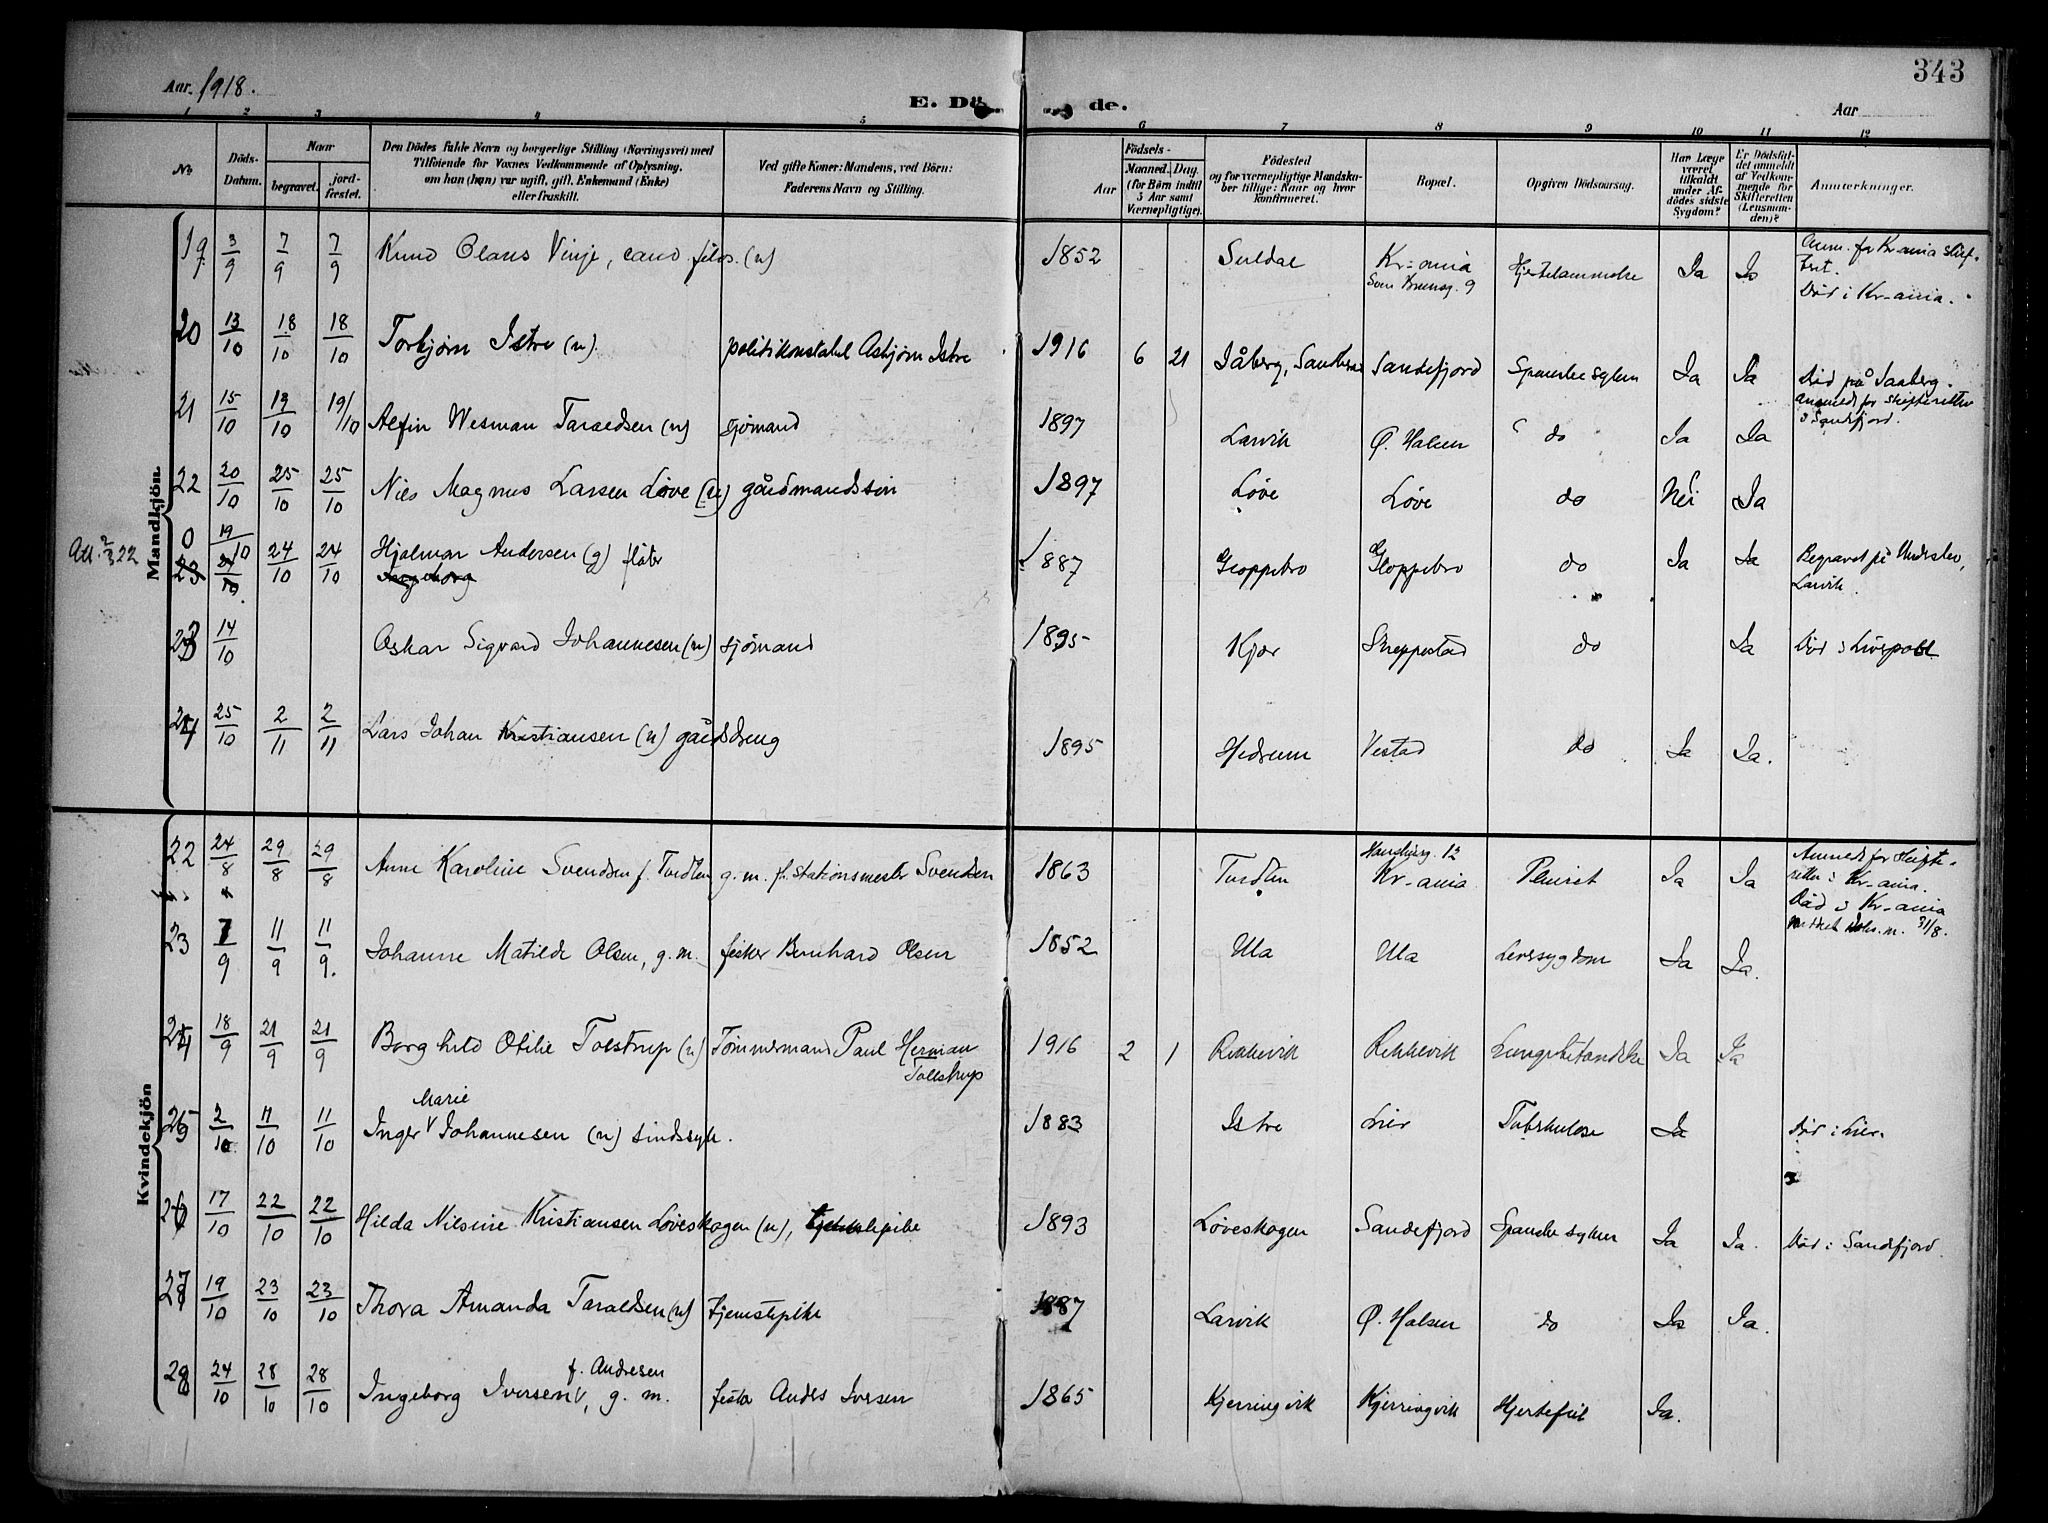 343
Aar 1918.
E. Dö de.
Aar
1 2 3 4 5 6 7 8 9 10 11 12
No.
Döds-Datum.
Naar
begravet.
jord-fæstet.
Den Dödes fulde Navn og borgerlige Stilling (Næringsvei) med
Tilföiende for Voxnes Vedkommende af Oplysning,
om han (hun) var ugift, gift, Enkemand (Enke)
eller fraskilt.
Ved gifte Koner: Mandens, ved Börn:
Faderens Navn og Stilling.
Födsels-
Aar
Maaned. Dag.
(for Börn indtil
5 Aar samt
Værnepligtige).
Födested
og for værnepligtige Mandska-
ber tillige: Naar og hvor
konfirmeret.
Bopæl.
Opgiven Dödsaarsag.
Har Læge
været
tilkaldt
under Af-
dödes sidste
Sygdom?
Er Dödsfal-
det anmeldt
af Vedkom-
mende for
Skifteretten
(Lensman-
den)?
Anmærkninger.
Mandkjön
19 3/9 7/9 7/9 Knud Olaus Vinje, cand. filos. (u) 1852 Suldal Kr-ania 9 Hjertelammelse Ja Ja Anm. for Kr-ania skif-
tret.
Död i Kr-ania.
20 13/10 18/10 18/10 Torbjørn Istre (u) politikonstabel Asbjørn Istre 1916 6 21 Jåberg, Sandherad Sandefjord Spanske syken Ja Ja Död på Jaaberg.
anmeldt for skifteretten
i Sandefjord.
21 15/10 19/10 19/10 Alfin Wesman Taraldsen (u) sjømand 1897 Larvik Ø. Halsen do Ja Ja
22 20/10 25/10 25/10 Nils Magnus Larsen Løve (u) gårdmandssøn 1897 Løve Løve do Nei Ja
Att. 2/3 22
0 23 19/10 21/10 24/10 24/10 Hjalmar Andersen (g) fløter 1887 Gloppebro Gloppebro do Ja Ja Begravet på Undersbo,
Larvik.
Ingeborg
23 14/10 Oskar Sigvard Johannesen (u) sjømand 1895 Kjær Skreppestad do Ja Död i Liverpool
24 25/10 2/11 2/11 Lars Johan Kristiansen (u) gårdsdreng 1895 Hedrum Vestad do Ja Ja.
Kvindekjön
22 24/8 29/8 29/8 Anne Karoline Svendsen f. Tvedten g. m. f. stationsmester Svendsen 1863 Tvedten 12 Kr-ania Pleurit Ja Ja Anmeldt for skifte-
retten i Kr-ania.
Död i Kr-ania
31/8.
23 7/9 11/9 11/9. Johanne Matilde Olsen, g. m. fisker Bernhard Olsen 1852 Ula Ula Leversygdom Ja Ja.
24 18/9 21/9 21/9 Borghild Otilie Tolstrup (u) Tømmermand Paul Herman
Tollstrup 1916 2 1 Rekkevik Rekkevik Lungebetændelse Ja Ja
Marie
25 2/10 11/10 11/10 Inger V Johannesen (u) sindssyk. 1883 Istre Lier Tuberkulose Ja Död i Lier.
26 17/10 22/10 22/10 Hilda Nilsine Kristiansen Løveskogen (u), tjenestepike 1893 Løveskogen Sandefjord Spanske syken Ja Ja. Död i Sandefjord.
27 19/10 23/10 23/10 Thora Amanda Taraldsen (u) tjenestepike 1887 Larvik Ø. Halsen do Ja Ja.
f. Andresen
28 24/10 28/10 28/10 Ingeborg Iversen V, g. m. Anders Iversen 1865 Kjerringvik Kjerringvik Hjertefeil Ja.